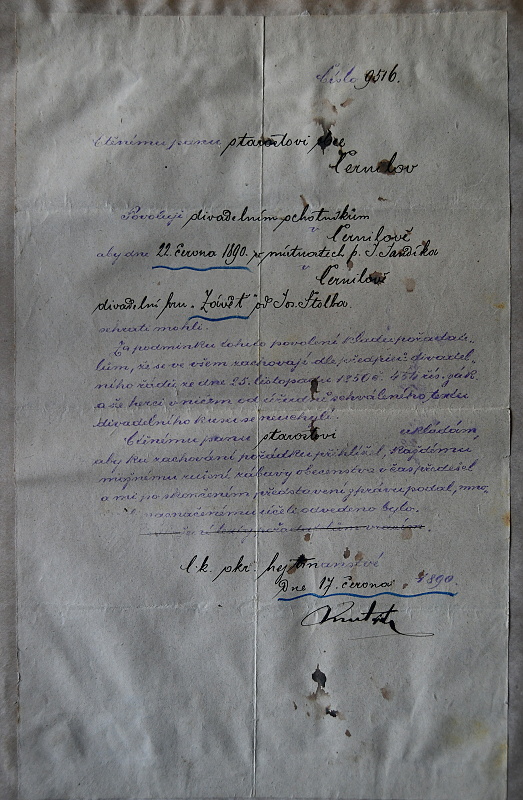 Číslo 9516.
Ctěnému panu starostovi obce
Černilov
Povoluji divadelním ochotníkům
v Černilově
aby dne 22. června 1890. v místnostech p. J. Jandíka
v Černilově
divadelní kus „Závěť" od Jos. Štolba
sehrati mohli.
Za podmínku tohoto povolení kladu pořadate-
lům, že se ve všem zachovají dle předpisů divadel-
ního řádu ze dne 25. listopadu 1850 č. 454 říš. zák.
a že herci v ničem od úředně schváleného textu
divadelního kusu se neuchýlí.
Ctěnému panu starostovi ukládám,
aby ku zachování pořádku přihlížel, každému
možnému rušení zábavy obecenstva včas předešel
a mi po skončeném představení zprávu podal,
naznačenému účeli odvedeno bylo.
C.k. okr. hejtmanství
Dne 17. června 1890.